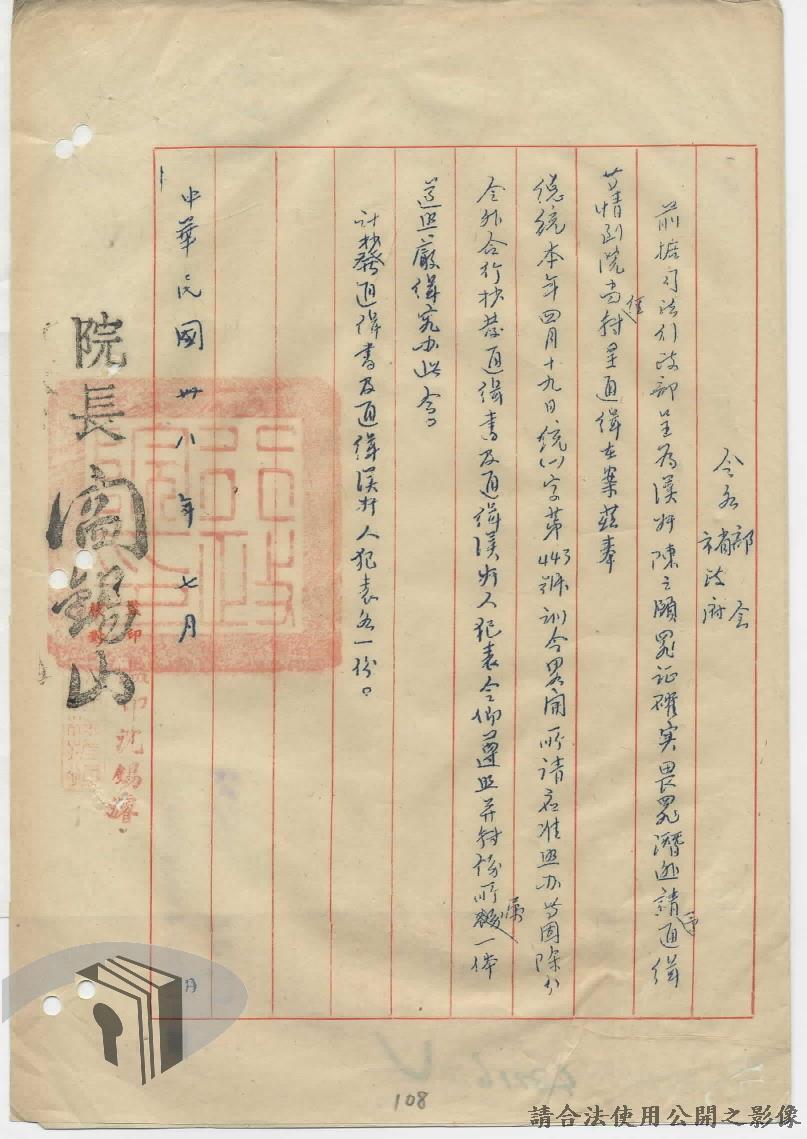 令各部會
省政府
前據司法行政部呈為漢奸陳之頤罪証確实畏罪潛逃請予通緝
等情到院當經轉呈通緝在案茲奉
總統本年四月十九日統(一)字第443號訓令畧開所請应准照办等因除分
令外合行抄發通緝書及通緝漢奸人犯表令仰遵照并轉飭所屬一体
遵照嚴緝究办此令。
計抄發通緝書及通緝漢奸人犯表各一份。
中華民國卅八年七月 日
院長 閻錫山
監印沈錫
108
請合法使用公開之影像